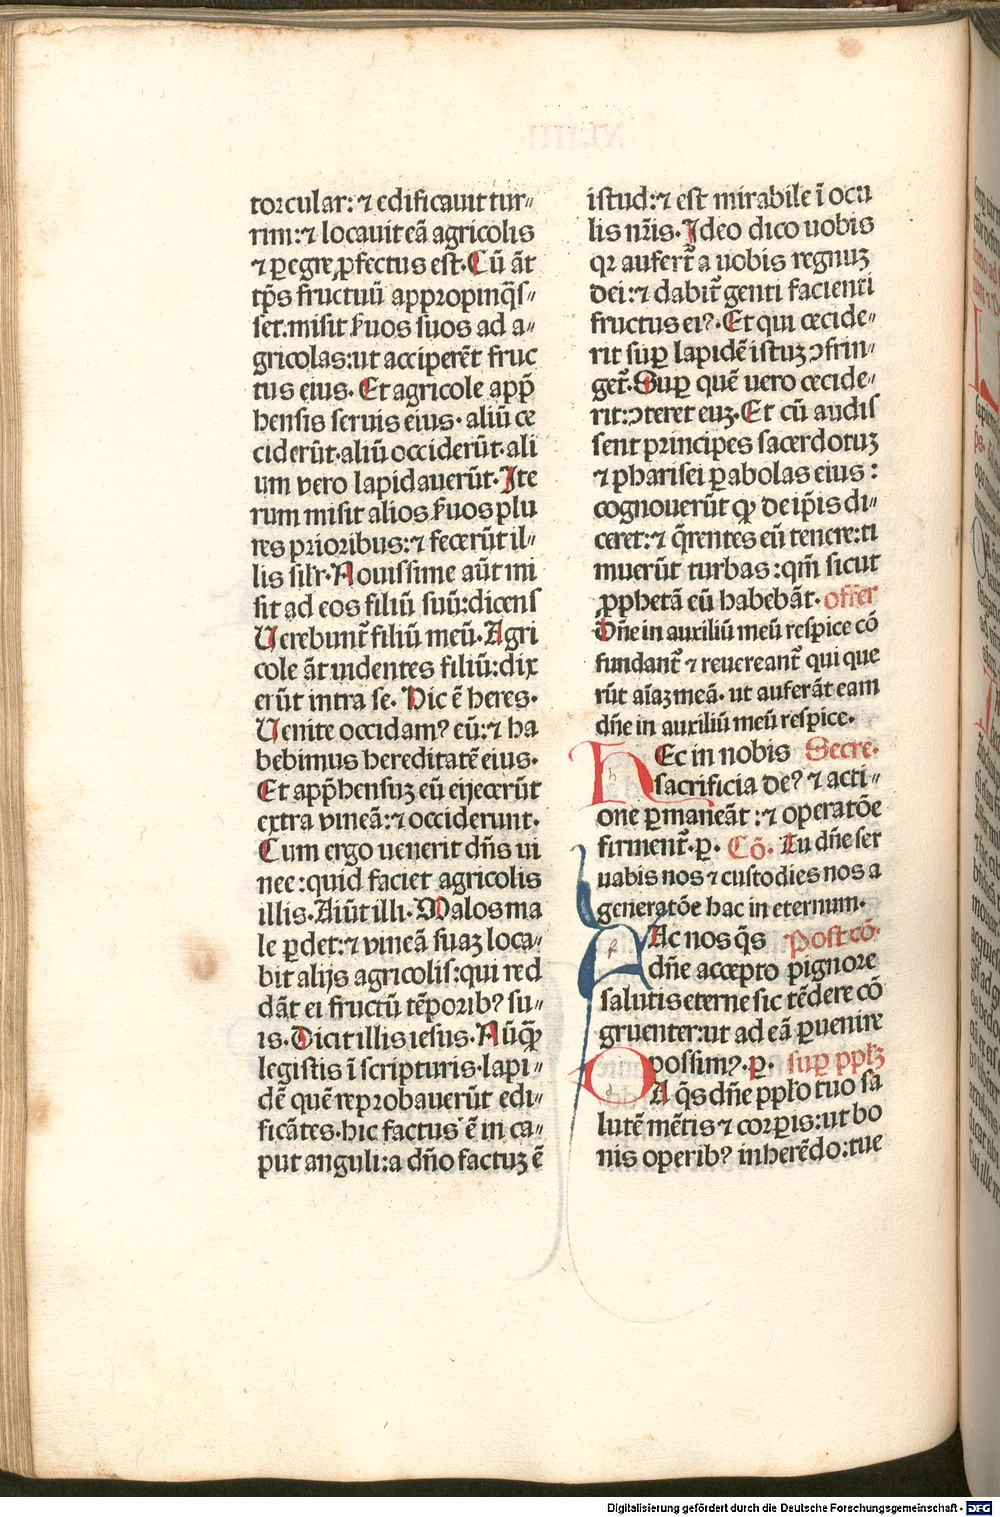 torcular: ⁊ edificauit tur⸗
rim: ⁊ locauit eā agricolis
⁊ ꝑegre ꝓfectus est. Cū āt
tp̄s fructuū appropinq̄s⸗
set. misit ẜuos suos ad a⸗
gricolas: ut acciperēt fruc
tus eius. Et agricole app̄
hensis seruis eius. aliū ce
ciderūt. aliū occiderūt. ali
um vero lapidauerūt. Ite
rum misit alios ẜuos plu
res prioribus: ⁊ fecerūt il⸗
lis silr̄. Nouissime aūt mi
sit ad eos filiū suū: dicens
Verebunt᷑ filiū meū. Agri
cole āt uidentes filiū: dix
erūt intra se. Hic ē heres.
Venite occidamꝰ eū: ⁊ ha
bebimus hereditatē eius.
Et app̄hensuꝫ eū eijecerūt
extra vineā: ⁊ occiderunt.
Cum ergo uenerit dn̄s ui
nee: quid faciet agricolis
illis. Aiūt illi. Malos ma
le ꝑdet: ⁊ vineā suaꝫ loca⸗
bit alijs agricolis: qui red
dāt ei fructū tēporibꝰ su⸗
is. Dicit illis iesus. Nūqꝫ
legistis ī scripturis. lapi⸗
dē quē reprobauerūt edi⸗
ficātes. hic factus ē in ca⸗
put anguli: a dn̄o factuꝫ ē
XLIIII
istud: ⁊ est mirabile ī ocu
lis nr̄is. Ideo dico uobis
qꝛ aufert᷑ a uobis regnuꝫ
dei: ⁊ dabit᷑ genti facienti
fructus eiꝰ. Et qui cecide⸗
rit suꝑ lapidē istuꝫ ↄfrin⸗
get᷑. Suꝑ quē uero cecide⸗
rit: ↄteret euꝫ. Et cū audis
sent principes sacerdotuꝫ
⁊ pharisei ꝑabolas eius:
cognouerūt ꝙ de ip̄is di⸗
ceret: ⁊ q̄rentes eū tenere: ti
muerūt turbas: qm̄ sicut
ꝓphetā eū habebāt. offer̄
Dn̄e in auxiliū meū respice cō
fundant᷑ ⁊ reuereant᷑ qui que
rūt aīaꝫ meā. ut auferāt eam
dn̄e in auxiliū meū respice.
HEc in nobis Secre.
sacrificia deꝰ ⁊ acti⸗
one ꝑmaneāt: ⁊ operatōe
firment᷑. ꝑ. Cō. Tu dn̄e ser
uabis nos ⁊ custodies nos a
generatōe hac in eternum.
FAc nos q̄s Post cō.
dn̄e accepto pignore
salutis eterne sic tēdere cō
gruenter: ut ad eā ꝑuenire
possimꝰ. ꝑ. suꝑ ppłꝫ
DA q̄s dn̄e ppło tuo sa
lutē mētis ⁊ corꝑis: ut bo
nis operibꝰ inherēdo: tue
Digitalisierung gefördert durch die Deutsche Forschungsgemeinschaft - DFG